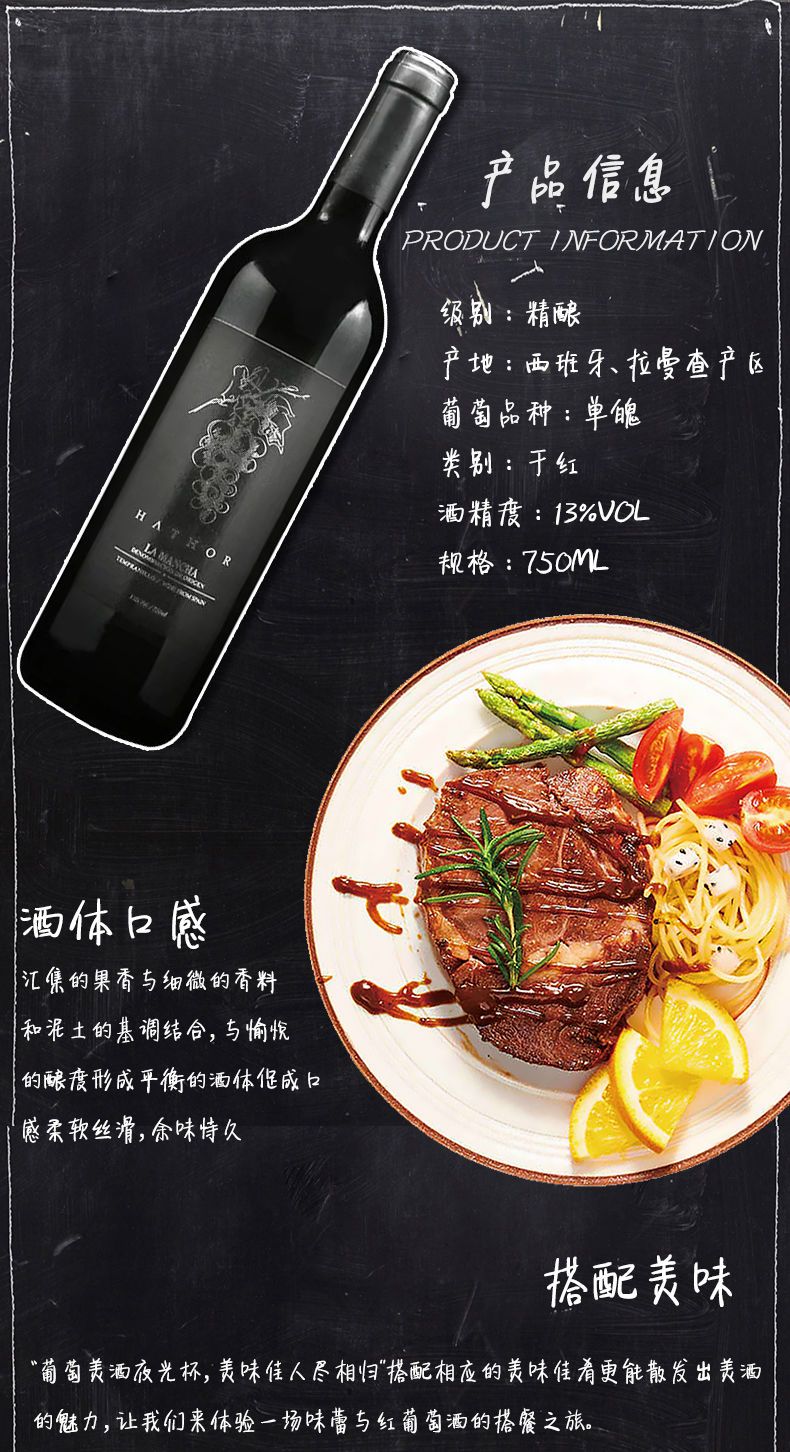 产品信息
PRODUCT INFORMATION
级别：精酿
产地：西班牙、拉曼查产区
葡萄品种：单魄
类别：干红
酒精度：13%VOL
规格：750ML
HATHOR
LA MANCHA
DENOMINACIÓN DE ORIGEN
酒体口感
汇集的果香与细微的香料
和泥土的基调结合,与愉悦
的酿度形成平衡的酒体促成口
感柔软丝滑,余味恃久
搭配美味
“葡萄美酒夜光杯,美味佳人尽相归”搭配相应的美味佳肴更能散发出美酒
的魅力,让我们来体验一场味蕾与红葡萄酒的搭餐之旅。